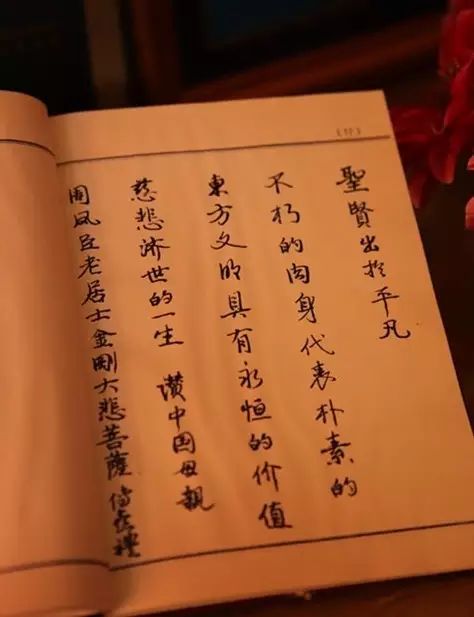 聖賢出於平凡
不朽的肉身代表朴素的
東方文明具有永恒的价值
慈悲济世的一生 讚中国母親
周凤臣老居士金剛大悲菩薩